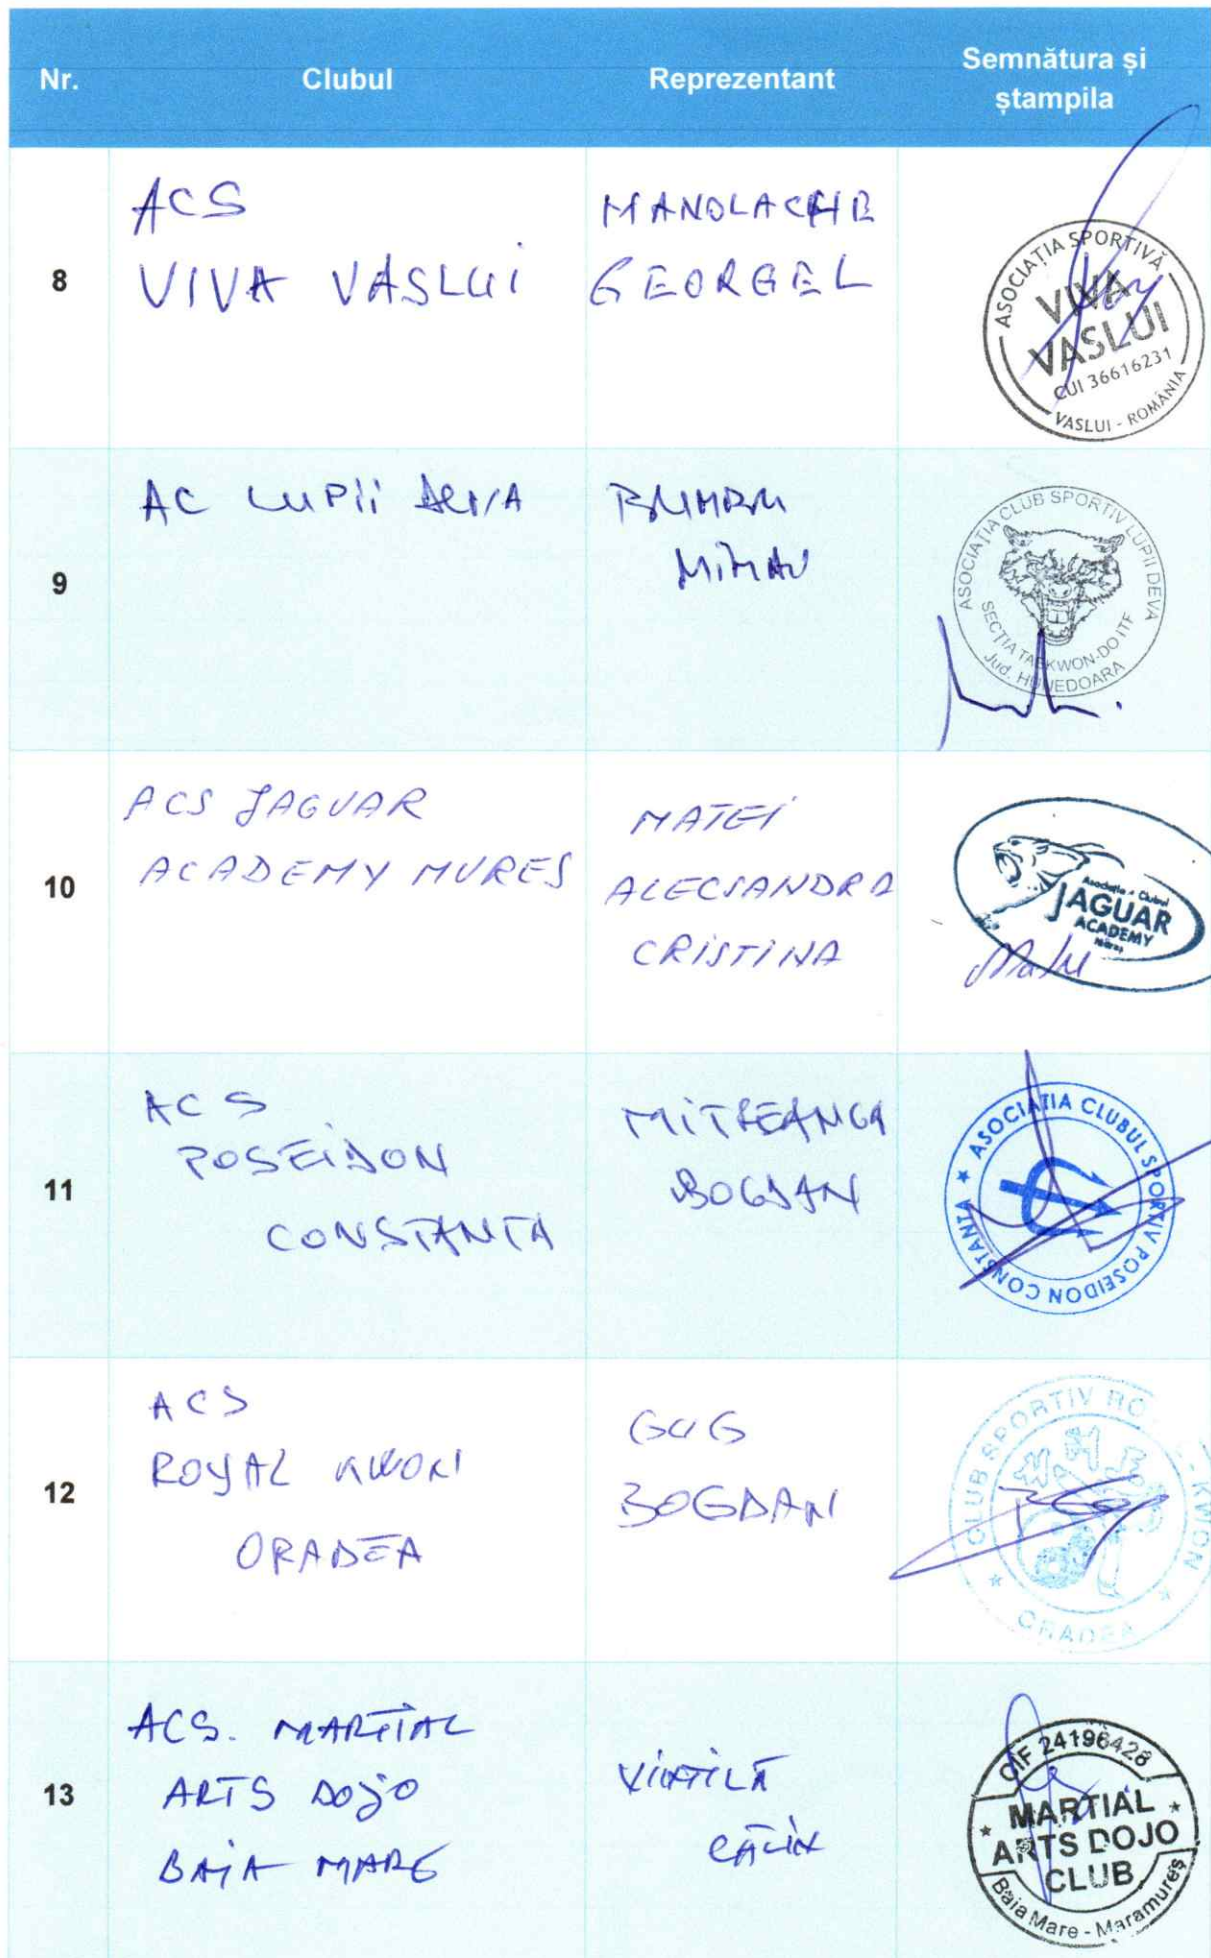 Nr. Clubul Reprezentant Semnătura și
ștampila
8
ACS
VIVA VASLUI
MANOLACHE
GEORGEL
ASOCIAȚIA SPORTIVĂ
VIVA
VASLUI
CUI 36616231
VASLUI - ROMÂNIA
9
AC LUPII DEVA
MIHAI
ASOCIAȚIA CLUB SPORTIV LUPII DEVA
SECȚIA TAEKWON-DO ITF
Jud. HUNEDOARA
10
ACS JAGUAR
ACADEMY MURES
MATEI
ALECSANDRA
CRISTINA
Asociația - Clubul
JAGUAR
ACADEMY
Mureș
11
ACS
POSEIDON
CONSTANTA
BOGDAN
★ ASOCIATIA CLUBUL SPORTIV POSEIDON CONSTANTA
12
ACS
ROYAL KWON
ORADEA
GUG
BOGDAN
CLUB SPORTIV RO - KWON
★ ORADEA ★
13
ACS. MARTIAL
ARTS DOJO
BAIA MARE
VINTILĂ
CĂLIN
CIF 24196428
★ MARTIAL ★
ARTS DOJO
CLUB
Baia Mare - Maramureș